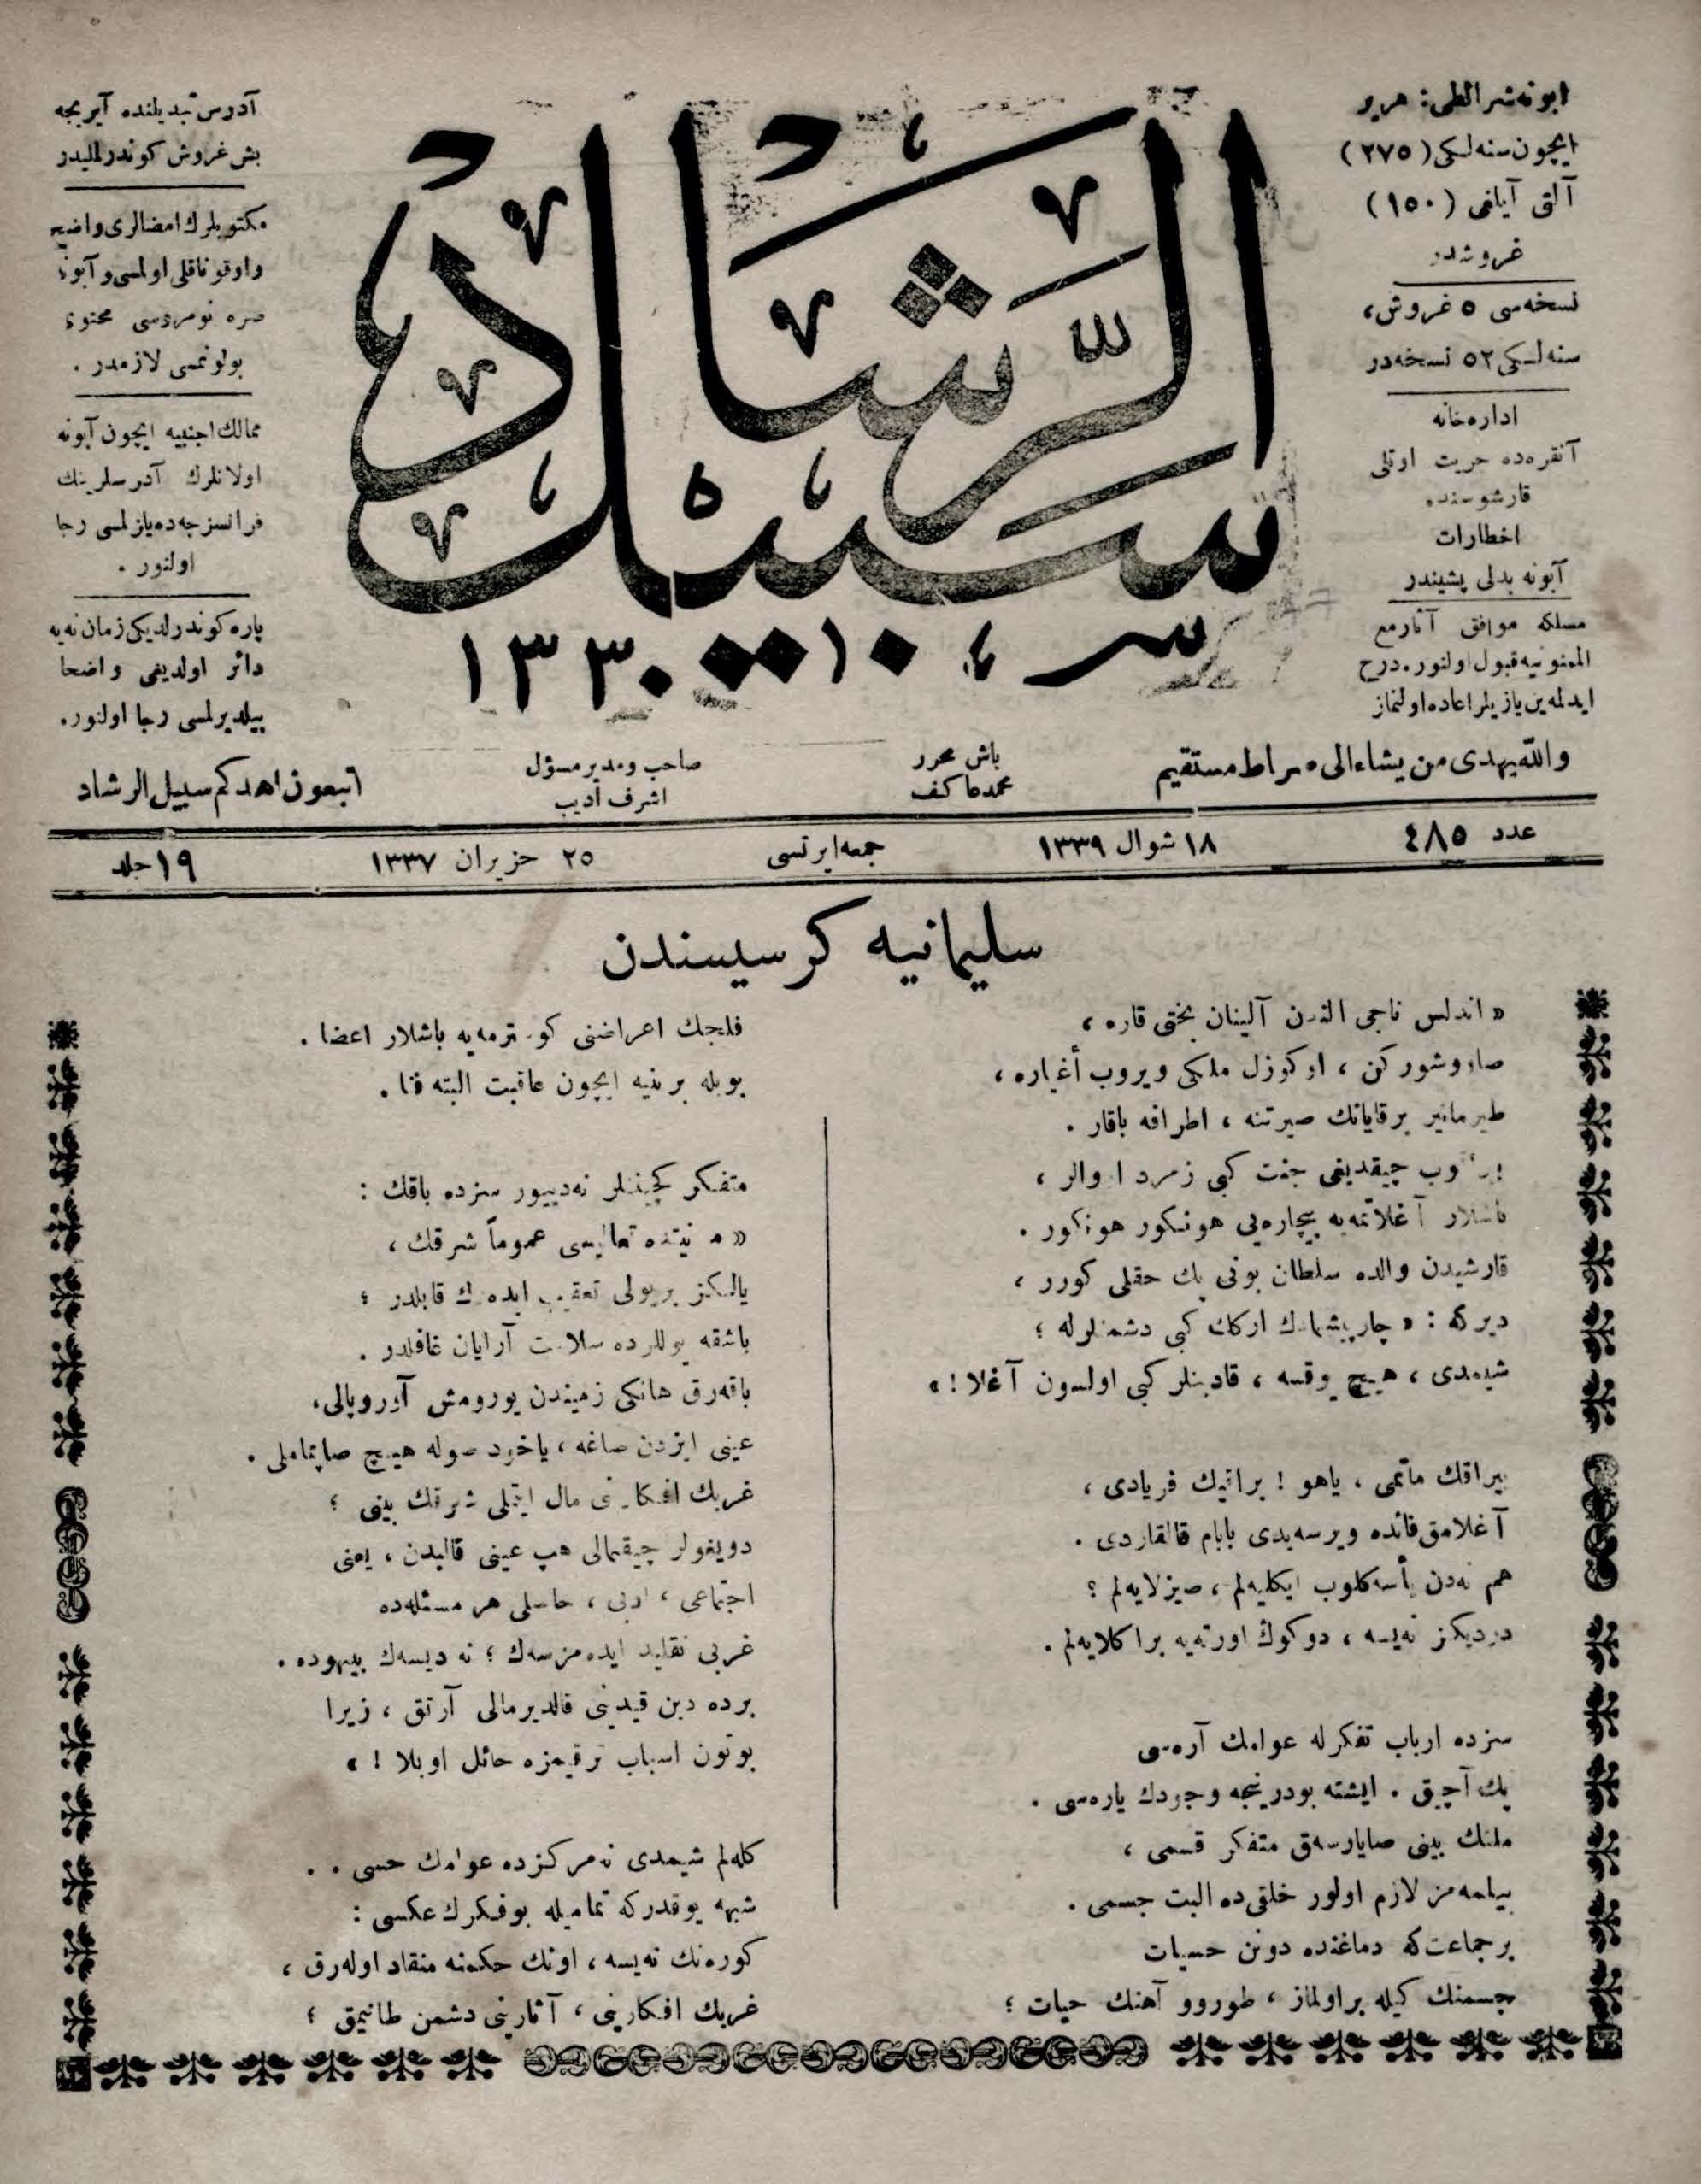 ابونه شرائطی: هر یر
ایچون سنه لكی (٢٧٥)
آلتی آیلغی (١٥٠)
غروشدر
نسخه سی ٥ غروش،
سنه لكی ٥٢ نسخه در
اداره خانه
آنقره ده حریت اوتلی
قارشوسنده
اخطارات
آبونه بدلی پشیندر
مسلكه موافق آثار مع
الممنونیه قبول اولنور. درج
ایدلمه ین یازیلر اعاده اولنماز
سبیل الرشاد
١٣٣٠
آدرس تبدیلنده آیریجه
بش غروش كوندرلملیدر
مكتوبلرك امضالری واضح
واوقوناقلی اولمسی و آبونه
صره نومروسی محتوی
بولونمسی لازمدر .
ممالك اجنبیه ایچون آبونه
اولانلرك آدرسلرینك
فرانسزجه ده یازلمسی رجا
اولنور .
پاره كوندرلدیكی زمان نه یه
دائر اولدیغی واضحا
بیلدیرلمسی رجا اولنور.
والله یهدی من یشاء الی صراط مستقیم
باش محرر
محمد عاكف
صاحب ومدیر مسؤل
اشرف أدیب
اتبعون اهدكم سبیل الرشاد
عدد ٤٨٥
١٨ شوال ١٣٣٩
جمعه ایرتسی
٢٥ حزیران ١٣٣٧
١٩ جلد
سلیمانیه كرسیسندن
« اندلس تاجی الندن آلینان بختی قاره ،
صاووشوركن ، او كوزل ملكی ویروب أغیاره ،
طیرمانیر بر قایانك صیرتنه ، اطرافه باقار .
چیقدیغی جنت كبی زمرد اووالر ،
باشلار آغلاتمه یه بیچاره یی هونكور هونكور .
قارشیدن والده سلطان بونی پك حقلی كورر ،
دیر كه : « چارپیشمادك ارككـ كبی دشمنلرله ؛
شیمدی ، هیچ یوقسه ، قادینلر كبی اولسون آغلا ! »
بیراقك ماتمی ، یاهو ! براقیك فریادی ،
آغلامق فائده ویرسه یدی بابام قالقاردی .
هم نه دن یأسه كلوب ایكلیه لم ، صیزلایه لم ؟
دردیكز نه یسه ، دوكوك اورته یه براكلایه لم .
سزده ارباب تفكرله عوامك آره سی
پك آچیق . ایشته بودر نیجه وجودك یاره سی .
ملتك بینی صایارسه ق متفكر قسمی ،
بیلمه مز لازم اولور خلقی ده البت جسمی .
بر جماعت كه دماغنده دونن حسیات
جسمنك كیله بر اولماز ، طورور آهنك حیات ؛
فلجك اعراضنی كوسترمه یه باشلار اعضا .
بویله بر بنیه ایچون عاقبت البته فنا .
متفكر كچینلر نه دییور سزده باقك :
« مدنیتده تعالیسی عموماً شرقك ،
یالكز بر یولی تعقیب ایده رك قابلدر ؛
باشقه یوللرده سلامت آرایان غافلدر .
باقه رق هانكی زمیندن یورومش آوروپالی،
عینی ایزدن صاغه ، یاخود صوله هیچ صاپماملی .
غربك افكارینی مال ایتملی شرقك بینی ؛
دویغولر چیقمالی هپ عینی قالبدن ، یعنی
اجتماعی ، ادبی ، حاصلی هر مسئله ده
غربی تقلید ایده مزسه ك ؛ نه دیسه ك بیهوده .
برده دین قیدینی قالدیرمالی آرتق ، زیرا
بوتون اسباب ترقیمزه حائل او بلا ! »
كله لم شیمدی نه مركزده عوامك حسی . .
شبهه یوقدر كه تمامیله بو فكرك عكسی :
كوره نك نه یسه ، اونك حكمنه منقاد اوله رق ،
غربك افكارینی ، آثارینی دشمن طانیمق ؛